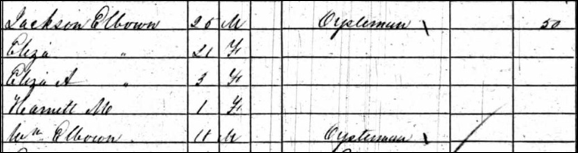 Jackson Elbown 25 M Oysterman \ 50
Eliza " 21 F
Eliza A " 3 F
Harriett M 1 F
Wm Elbown 11 M Oysterman \